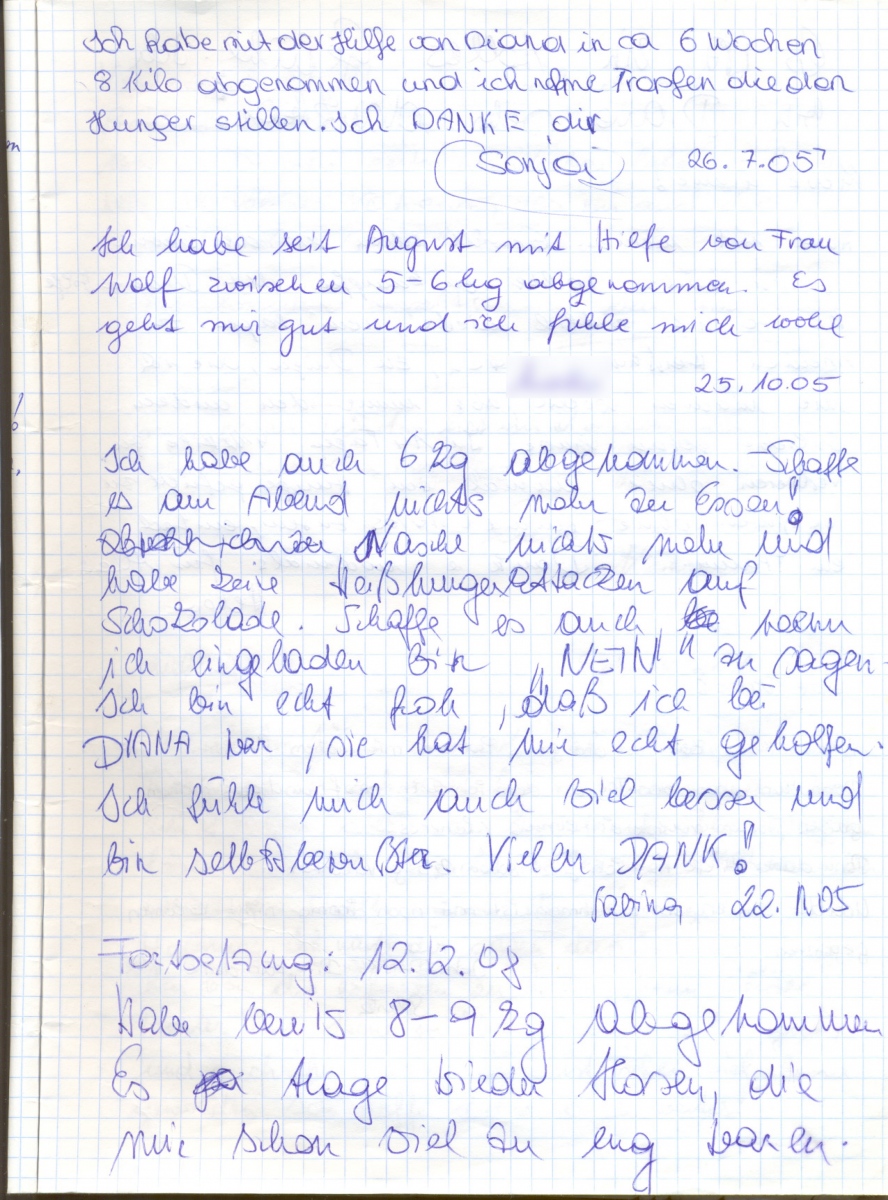 Ich habe mit der Hilfe von Diana in ca 6 Wochen
8 Kilo abgenommen und ich nehme Tropfen die den
Hunger stillen. Ich DANKE dir
Sonja 26.7.05
Ich habe seit August mit Hilfe von Frau
Wolf zwischen 5-6 kg abgenommen. Es
geht mir gut und ich fühle mich wohl
25.10.05
Ich habe auch 6 kg abgenommen. Schaffe
es am Abend nichts mehr zu Essen!
Nasche nichts mehr und
habe keine Heißhungerattacken auf
Schokolade. Schaffe es auch wenn
ich eingeladen bin "NEIN" zu sagen.
Ich bin echt froh, daß ich bei
DIANA war, sie hat mir echt geholfen.
Ich fühle mich auch viel besser und
bin selbstbewußter. Vielen DANK!
Sabina 22.11.05
Fortsetzung: 12.12.
Habe bereits 8-9 kg abgenommen
Es trage wieder Hosen, die
mir schon viel zu eng waren.